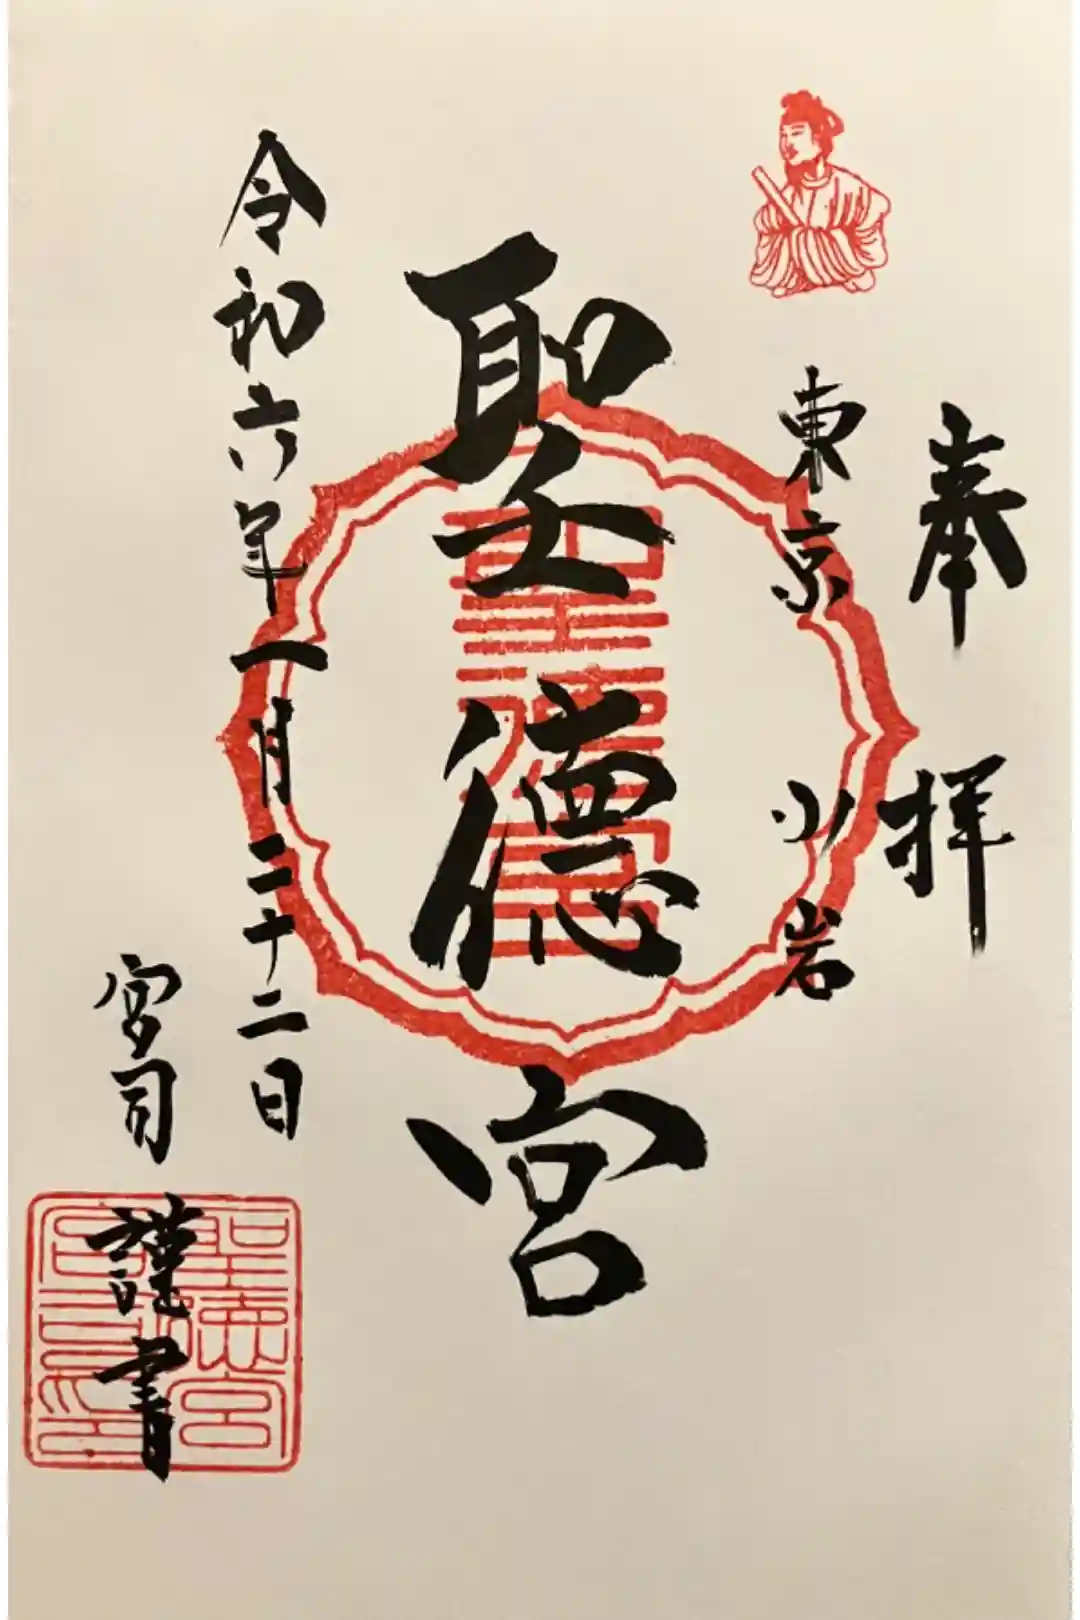 奉拝
東京小岩
聖徳宮
令和六年一月二十二日
宮司
謹書
聖徳宮
聖徳宮宮司之印